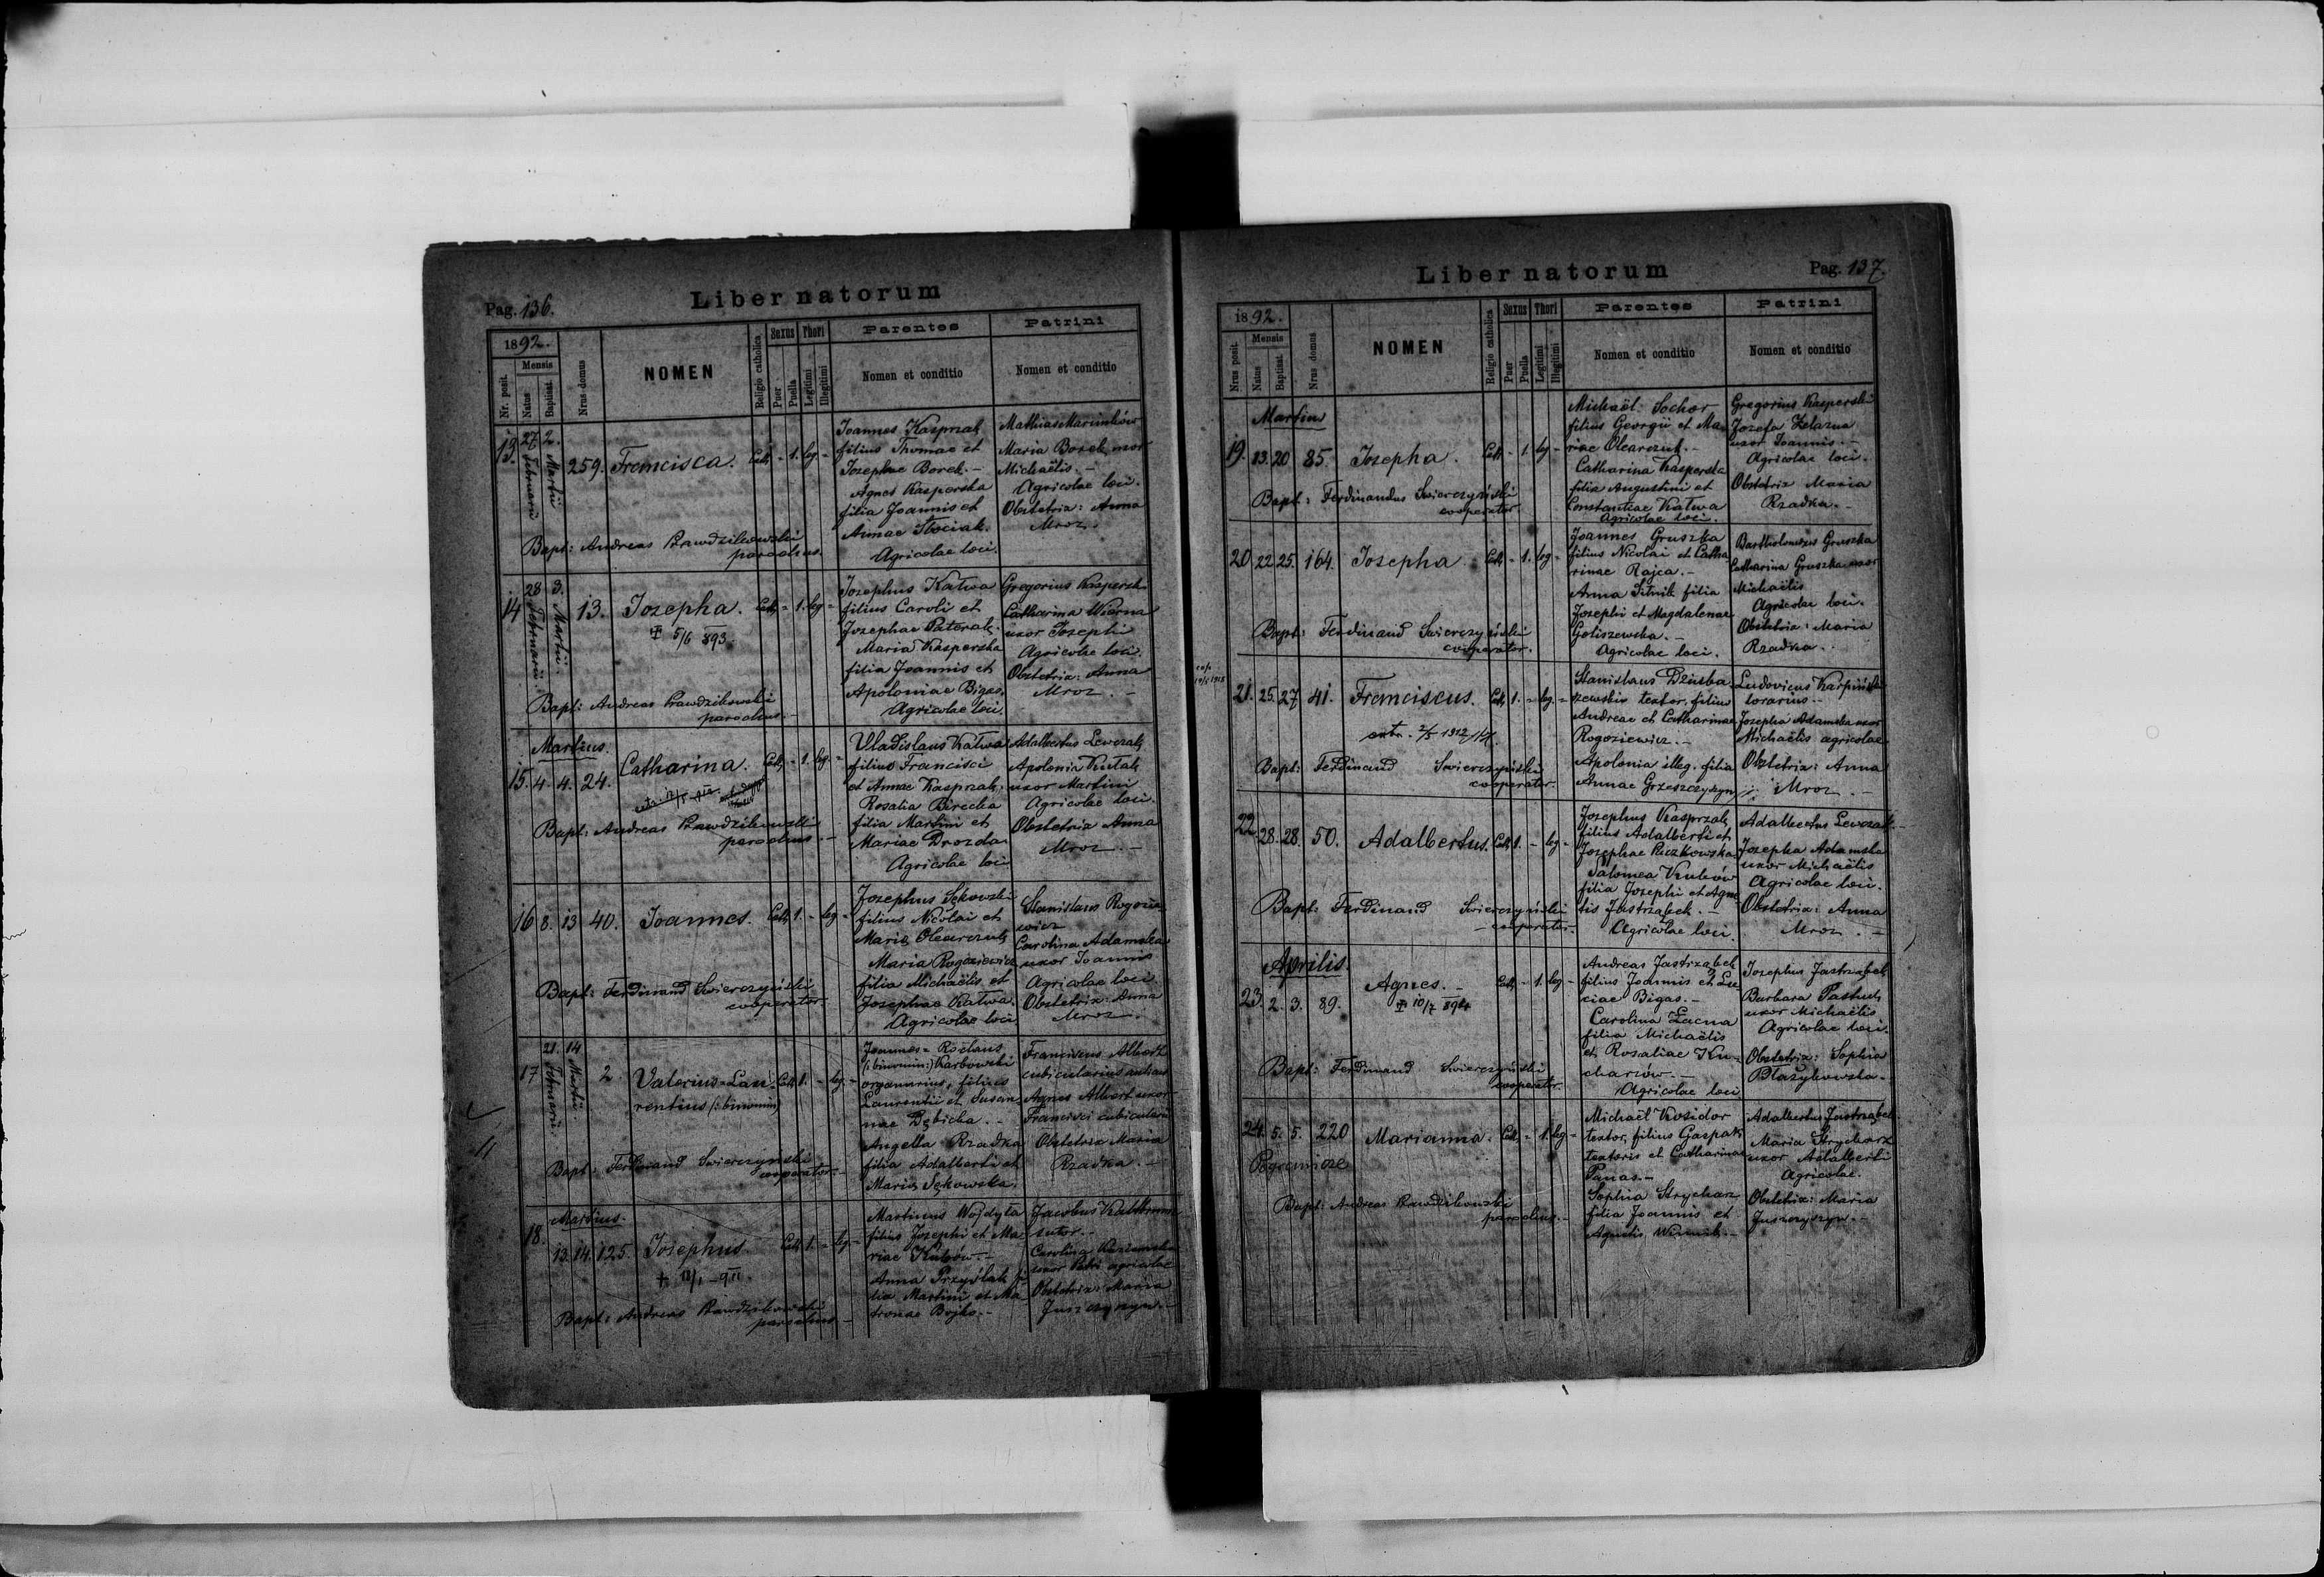 Pag. 136.
Liber natorum
1892.
Nr. posit.
Mensis
Natus
Baptisat.
Nrus domus
NOMEN
Religio catholica
Sexus
Puer
Puella
Thori
Legitimi
Illegitimi
Parentes
Nomen et conditio
Patrini
Nomen et conditio
13.
27. Februarii
2. Martii
259. Francisca. Cath - 1. leg -
Bapt: Andreas Prawdzikowski
parochus.
Joannes Kasprzak
filius Thomae et
Josephae Borek. -
Agnes Kasperska
filia Joannis et
Annae Stociak.
Agricolae loci.
Mathias Marinków
Maria Borek uxor
Michaëlis. -
Agricolae loci.
Obstetrix: Anna
Mroz.
14
28 Februarii
3. Martii.
13. Josepha. Cath - 1. leg -
5/6 893.
Bapt: Andreas Prawdzikowski
parochus. -
Josephus Kalwa
filius Caroli et
Josephae Paterak.
Maria Kasperska
filia Joannis et
Apoloniae Bigas.
Agricolae loci.
Gregorius Kaspersk
Catharina Wierna
uxor Josephi
Agricolae loci.
Obstetrix: Anna
Mroz. -
Martius.
15. 4. 4. 24. Catharina. Cath - 1. leg. -
Bapt: Andreas Prawdzikowski
parochus. -
Vladislaus Kalwa
filius Francisci
et Annae Kasprzak.
Rosalia Birecka
filia Martini et
Mariae Drozda
Agricolae loci
Adalbertus Lewczak
Apolonia Kutak
uxor Martini
Agricolae loci.
Obstetrix Anna
Mroz. -
16 8. 13 40. Joannes. Cath 1. - leg -
Bapt: Ferdinand Swierczyński
cooperator. -
Josephus Sękowski
filius Nicolai et
Maria Olearczuk
Maria Rogoziewicz
filia Michaëlis et
Josephae Kalwa.
Agricolae loci
Stanislaus Rogozie
wicz
Carolina Adamska
uxor Joannis
Agricolae loci.
Obstetrix: Anna
Mroz.
17
21. Februarii.
14 Martii.
2. Valerius-Lau-
rentius (: binomin) Cath 1. - leg. -
Bapt: Ferdinand Swierczyński
cooperator. -
Joannes = Rochus
(: binomin:) Karbowski
organarius, filius
Laurentii et Susan
nae Dębicka. -
Angella Rzadka
filia Adalberti et
Maria Sękowska.
Franciscus Albert
cubicularius
Agnes Albert uxor
Francisci cubicularii
Obstetrix Maria
Rzadka. -
Martius.
18. 13. 14. 125. Josephus. Cath 1. - leg -
Bapt: Andreas Prawdzikowski
parochus -
Martinus Wojdyła
filius Josephi et Ma
riae Kubów. -
Anna Przyślak fi
lia Martini et Ma
tronae Bojko. -
Jacobus
sutor. -
Carolina
uxor Petri agricolae
Obstetrix: Maria
Juszczyszyn. -
Liber natorum
Pag. 137.
1892.
Nrus posit.
Mensis
Natus
Baptisat.
Nrus domus
NOMEN
Religio catholica
Sexus
Puer
Puella
Thori
Legitimi
Illegitimi
Parentes
Nomen et conditio
Patrini
Nomen et conditio
Martius
19. 13. 20 85. Josepha. Cath - 1. leg -
Bapt: Ferdinandus Swierczyński
cooperator.
Michaël Sochor
filius Georgii et Ma
riae Olearczuk. -
Catharina Kasperska
filia Augustini et
Constantiae Kalwa
Agricolae loci.
Gregorius Kasperski
Jozefa Zelazna
uxor Joannis. -
Agricolae loci.
Obstetrix Maria
Rzadka. -
20 22 25. 164. Josepha. Cath - 1. leg -
Bapt: Ferdinand Swierczyński
cooperator.
Joannes Gruszka
filius Nicolai et Catha
rinae Rajca. -
Anna Sitnik filia
Josephi et Magdalenae
Goliszewska. -
Agricolae loci.
Bartholomeus Gruszka
Catharina Gruszka uxor
Michaëlis
Agricolae loci.
Obstetrix: Maria
Rzadka. -
21. 25. 27 41. Franciscus. Cath 1. - leg. -
2/5 1912
Bapt: Ferdinand Swierczyński
cooperator.
Stanislaus Dziuba
szewski textor, filius
Andreae et Catharinae
Rogoziewicz. -
Apolonia illeg. filia
Annae Grzeszczyszyn
Ludovicus Karpiński
lorarius. -
Josepha Adamska uxor
Michaëlis agricolae.
Obstetrix: Anna
Mroz. -
22 28. 28. 50. Adalbertus. Cath 1. - leg -
Bapt: Ferdinand Swierczyński
cooperator.
Josephus Kasprzak
filius Adalberti et
Josephae Ruczkowska
Salomea Kubów
filia Josephi et Agne
tis Jastrząbek. -
Agricolae loci.
Adalbertus Lewczak -
Josepha Adamska
uxor Michaëlis
Agricolae loci.
Obstetrix: Anna
Mroz. -
Aprilis.
23. 2. 3. 89. Agnes. - Cath - 1. leg -
10/7 894
Bapt: Ferdinand Swierczyński
cooperator.
Andreas Jastrząbek
filius Joannis et Lu
ciae Bigas. -
Carolina Łacna
filia Michaëlis
et Rosaliae Ku-
charzów. -
Agricolae loci
Josephus Jastrząbek
Barbara Pastuch
uxor Michaëlis
Agricolae loci.
Obstetrix: Sophia
Błażykowska. -
24. 5. 5. 220 Marianna. Cath - 1. leg -
Bapt: Andreas Prawdzikowski
parochus. -
Michaël Kosidor
textor, filius Gaspari
textoris et Catharinae
Panas. -
Sophia Strycharz
filia Joannis et
Agnetis Winnik. -
Adalbertus Jastrząbek
Maria Strycharz
uxor Adalberti
Agricolae.
Obstetrix: Maria
Juszczyszyn. -